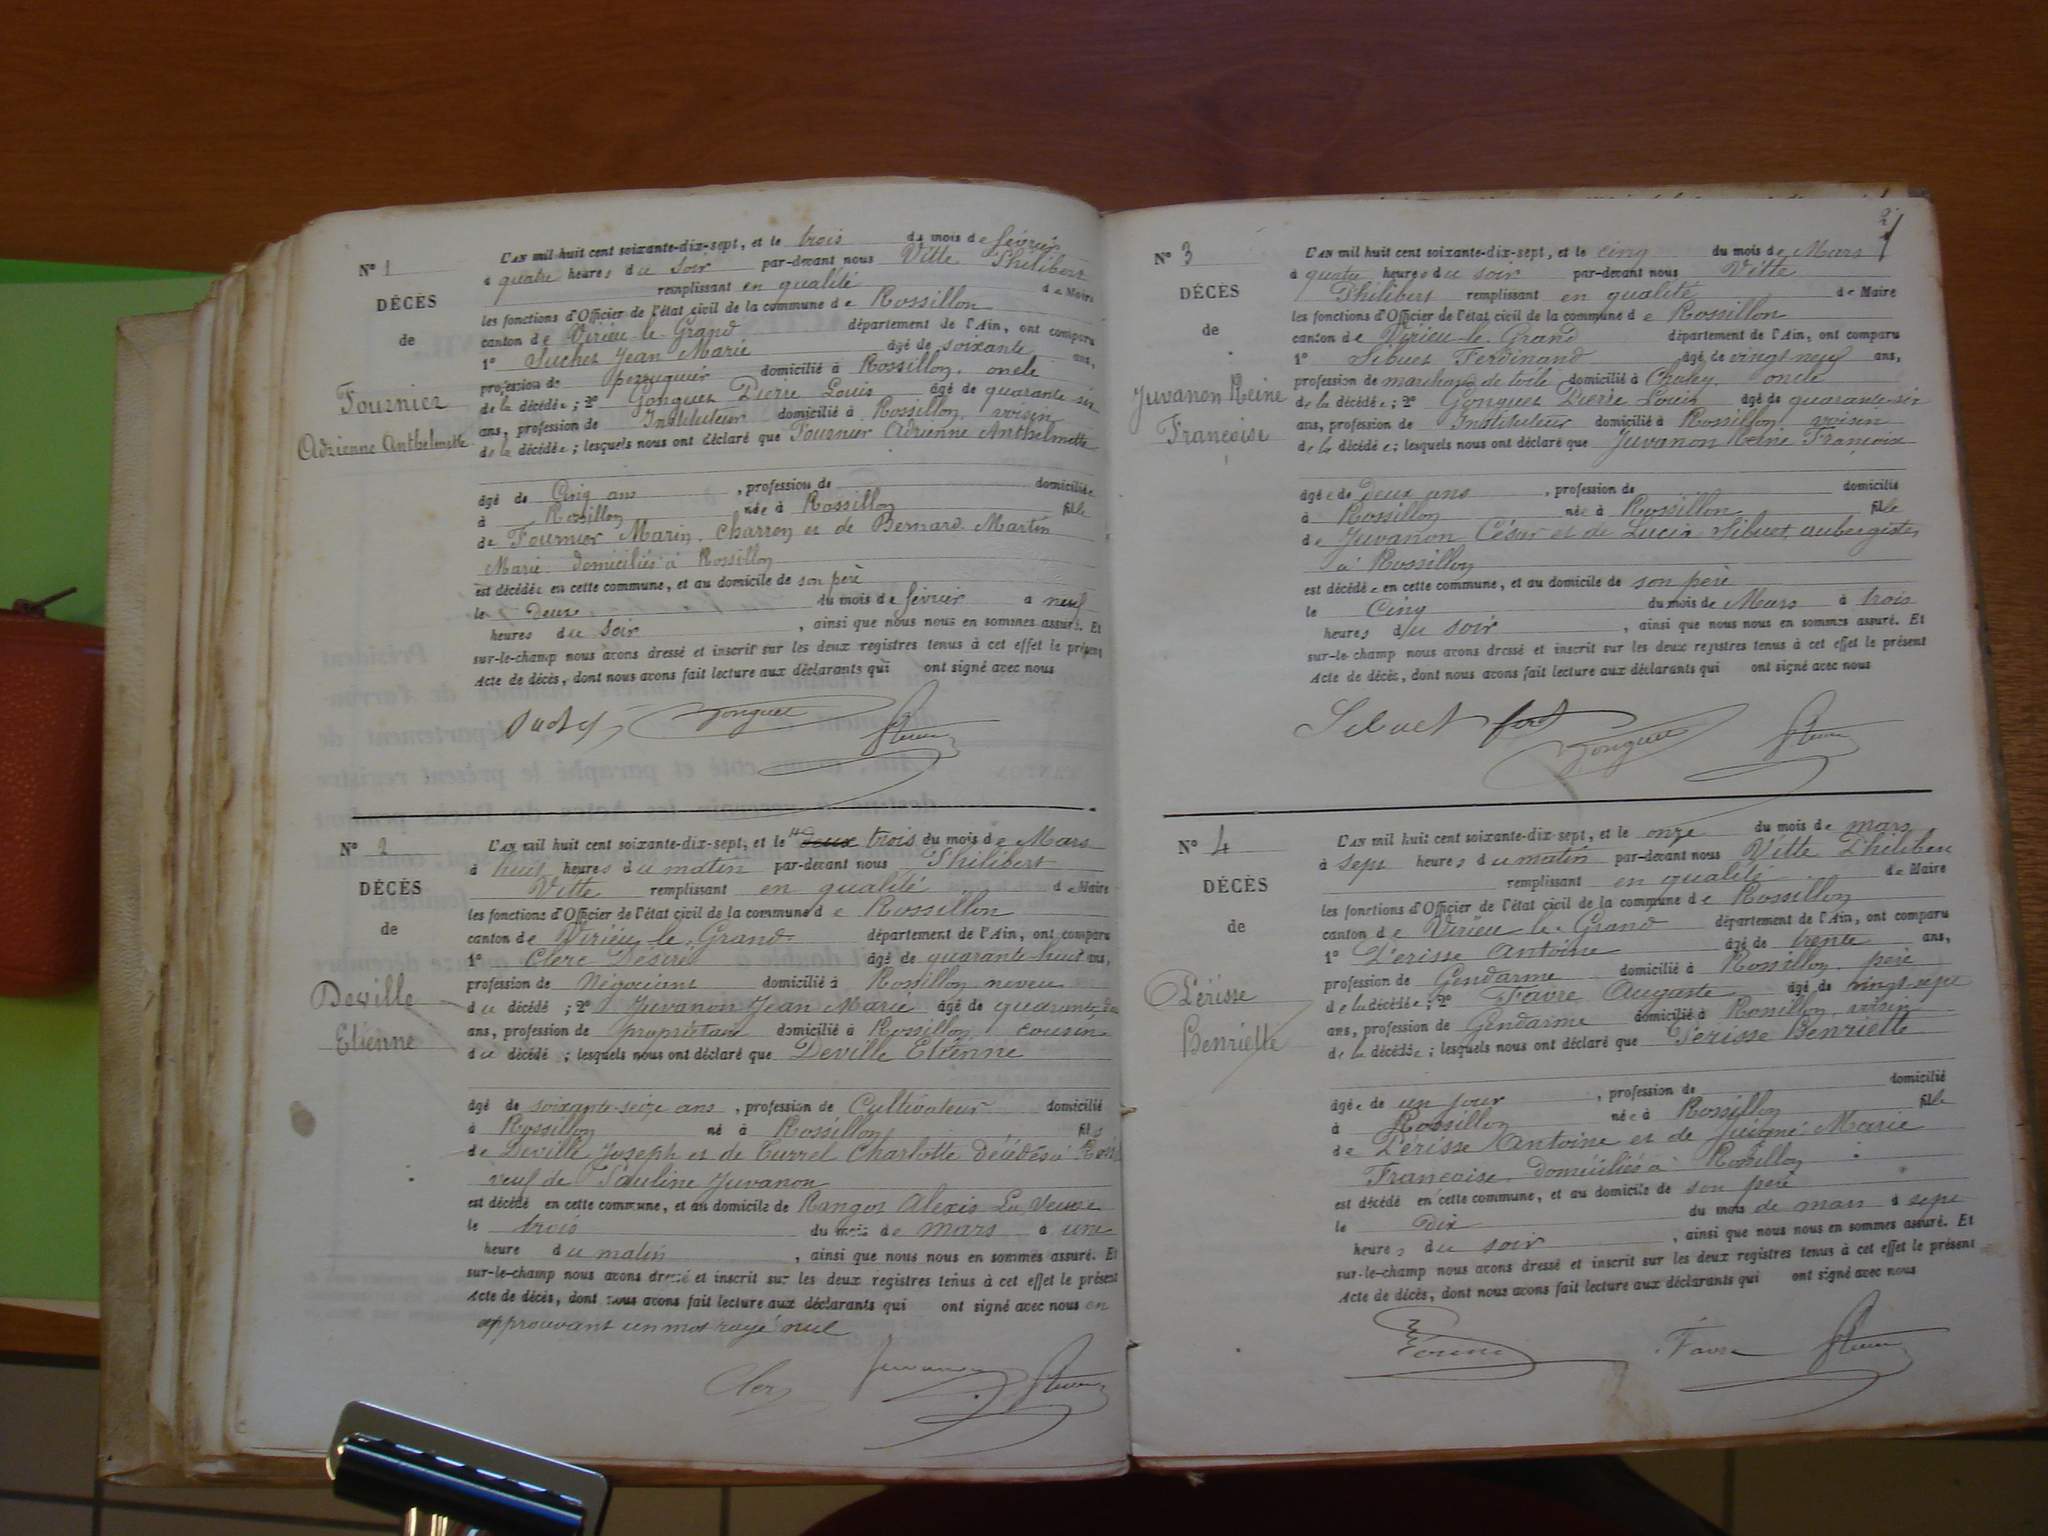 N° 1
DÉCÈS
de
Fournier
Adrienne Anthelmette
L'AN mil huit cent soixante-dix-sept, et le trois du mois de février
à quatre heures du soir par-devant nous Vitte Philibert
remplissant en qualité de Maire
les fonctions d'Officier de l'état civil de la commune de Rossillon
canton de Virieu-le-Grand département de l'Ain, ont comparu
1° Suchet Jean Marie âgé de soixante ans,
profession de perruquier domicilié à Rossillon, oncle
de la décédée ; 2° Gonguet Pierre Louis âgé de quarante-six
ans, profession de Instituteur domicilié à Rossillon, voisin
de la décédée ; lesquels nous ont déclaré que Fournier Adrienne Anthelmette
âgé de Cinq ans , profession de domiciliée
à Rossillon née à Rossillon fille
de Fournier Marin, charron et de Bernard Martin
Marie domiciliés à Rossillon
est décédée en cette commune, et au domicile de son père
le deux du mois de février à neuf
heures du soir , ainsi que nous nous en sommes assuré. Et
sur-le-champ nous avons dressé et inscrit sur les deux registres tenus à cet effet le présent
Acte de décès, dont nous avons fait lecture aux déclarants qui ont signé avec nous
Gonguet
N° 2
DÉCÈS
de
Deville
Etienne
L'AN mil huit cent soixante-dix-sept, et le deux trois du mois de Mars
à huit heures du matin par-devant nous Philibert
Vitte remplissant en qualité de Maire
les fonctions d'Officier de l'état civil de la commune de Rossillon
canton de Virieu-le-Grand département de l'Ain, ont comparu
1° Clerc Désiré âgé de quarante-huit ans,
profession de Négociant domicilié à Rossillon neveu
du décédé ; 2° Juvanon Jean Marie âgé de quarante-
ans, profession de propriétaire domicilié à Rossillon, cousin
du décédé ; lesquels nous ont déclaré que Deville Etienne
âgé de soixante-seize ans , profession de Cultivateur domicilié
à Rossillon né à Rossillon fils
de Deville Joseph et de Currel Charlotte décédés à
veuf de Pauline Juvanon
est décédé en cette commune, et au domicile de Rangot Alexis La Veuve
le trois du mois de mars à une
heure du matin , ainsi que nous nous en sommes assuré. Et
sur-le-champ nous avons dressé et inscrit sur les deux registres tenus à cet effet le présent
Acte de décès, dont nous avons fait lecture aux déclarants qui ont signé avec nous en
approuvant un mot rayé nul
Clerc Juvanon
2
N° 3
DÉCÈS
de
Juvanon Reine
Françoise
L'AN mil huit cent soixante-dix-sept, et le cinq du mois de Mars
à quatre heures du soir par-devant nous Vitte
Philibert remplissant en qualité de Maire
les fonctions d'Officier de l'état civil de la commune de Rossillon
canton de Virieu-le-Grand département de l'Ain, ont comparu
1° Sibuet Ferdinand âgé de vingt neuf ans,
profession de marchand de toile domicilié à oncle
de la décédée ; 2° Gonguet Pierre Louis âgé de quarante-six
ans, profession de Instituteur domicilié à Rossillon, voisin
de la décédée ; lesquels nous ont déclaré que Juvanon Reine Françoise
âgée de Deux ans , profession de domicilié
à Rossillon née à Rossillon fille
de Juvanon César et de Lucie Sibuet aubergistes
à Rossillon
est décédée en cette commune, et au domicile de son père
le Cinq du mois de Mars à trois
heures du soir , ainsi que nous nous en sommes assuré. Et
sur-le-champ nous avons dressé et inscrit sur les deux registres tenus à cet effet le présent
Acte de décès, dont nous avons fait lecture aux déclarants qui ont signé avec nous
Sibuet ferd
Gonguet
N° 4
DÉCÈS
de
Périsse
Henriette
L'AN mil huit cent soixante-dix-sept, et le onze du mois de mars
à sept heures du matin par-devant nous Vitte Philibert
remplissant en qualité de Maire
les fonctions d'Officier de l'état civil de la commune de Rossillon
canton de Virieu-le-Grand département de l'Ain, ont comparu
1° Périsse Antoine âgé de trente ans,
profession de Gendarme domicilié à Rossillon, père
de la décédée ; 2° Favre Auguste âgé de vingt-sept
ans, profession de Gendarme domicilié à Rossillon, voisin
de la décédée ; lesquels nous ont déclaré que Périsse Henriette
âgée de un jour , profession de domicilié
à Rossillon née à Rossillon fille
de Périsse Antoine et de Juigné Marie
Françoise, domiciliés à Rossillon
est décédé en cette commune, et au domicile de son père
le dix du mois de mars à sept
heures du soir , ainsi que nous nous en sommes assuré. Et
sur-le-champ nous avons dressé et inscrit sur les deux registres tenus à cet effet le présent
Acte de décès, dont nous avons fait lecture aux déclarants qui ont signé avec nous
Favre